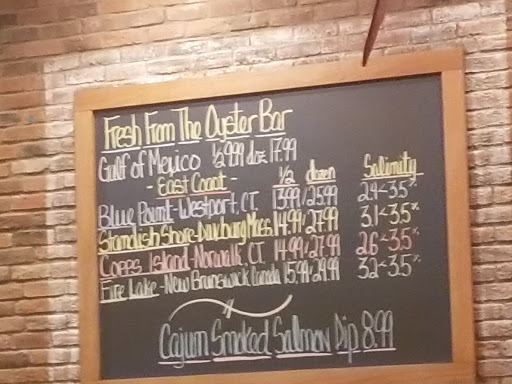 Fresh From The Oyster Bar
Gulf of Mexico ½ 9.99 doz 17.99
- East Coast - ½ dozen Salinity
Blue Point - Westport, CT. 13.99/25.99 2.9-3.5%
Standish Shore - Duxbury Mass 14.99/27.99 3.1-3.5%
Copps Island - Norwalk, CT 14.99/27.99 2.6-3.5%
Fire Lake - New Brunswick, Canada 15.99/29.99 3.2-3.5%
Cajun Smoked Salmon Dip 8.99